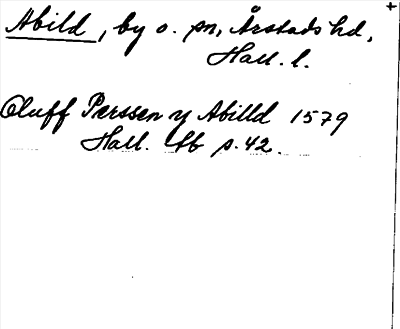 Abild, by o. sn, Årstads hd,
Hall. l.
Oluff Perssen y Abilld 1579
Hall. tb p. 42.